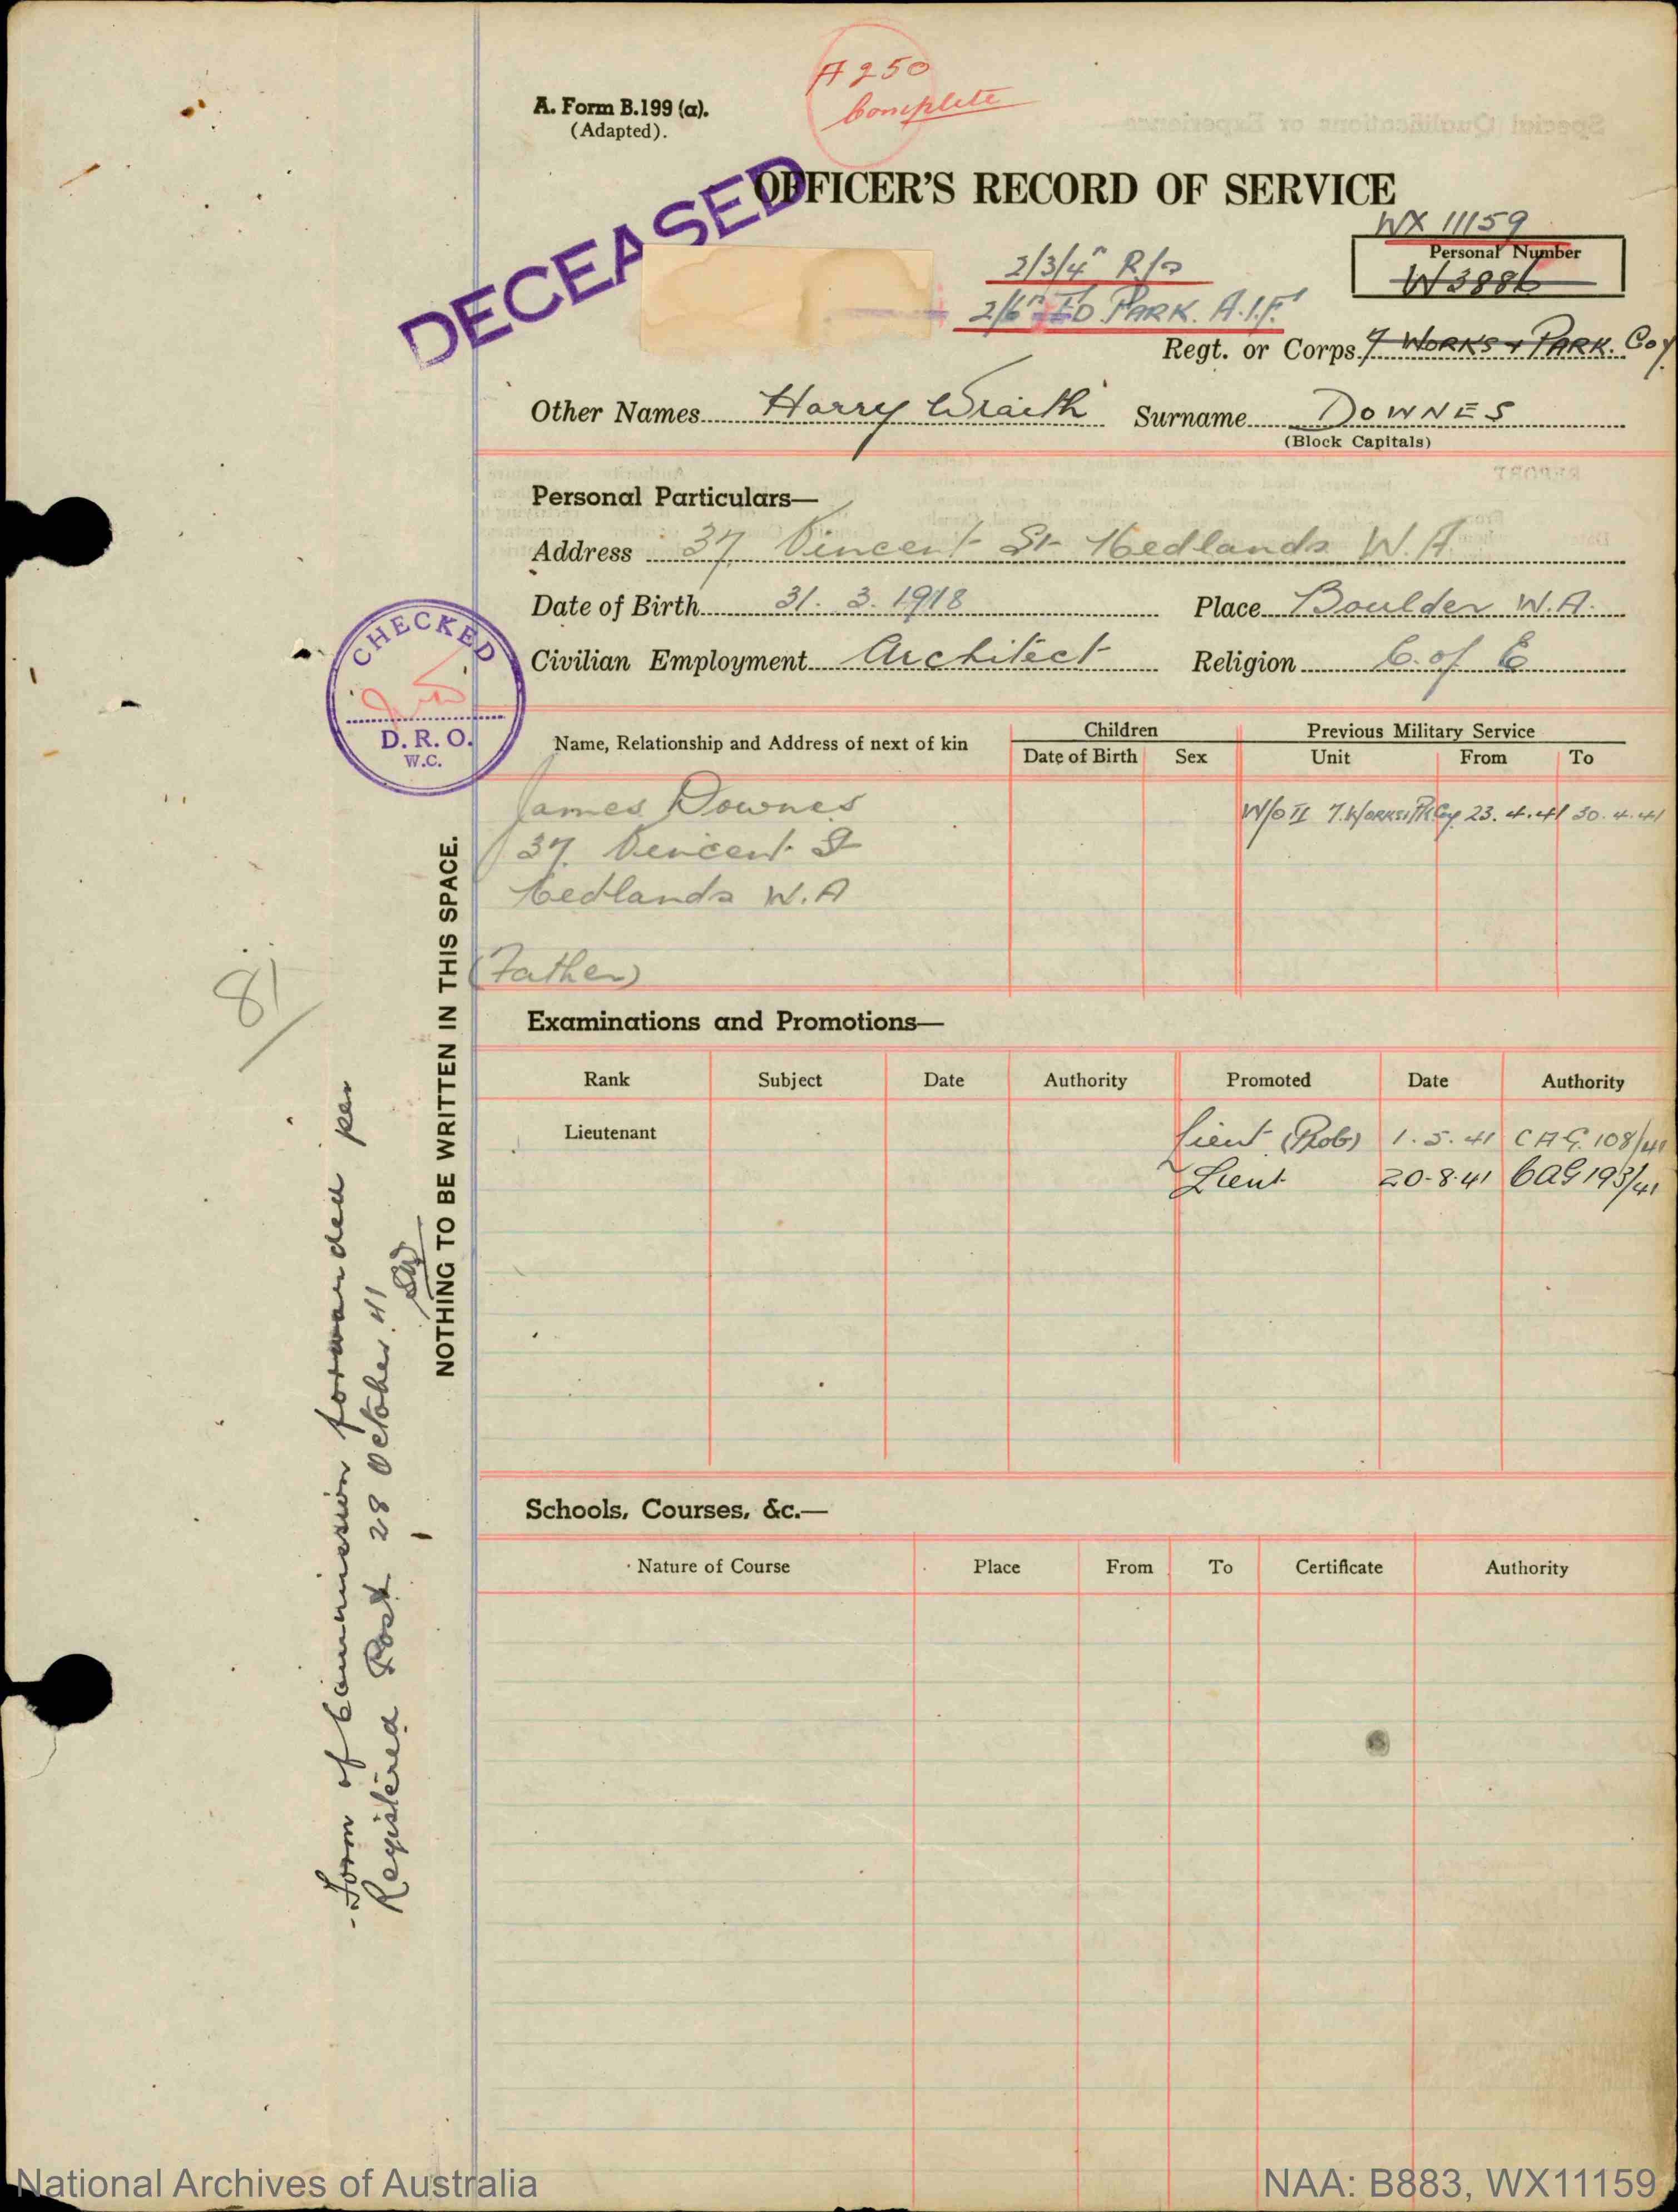 A 250
Complete
A. Form B.199 (a).
(Adapted).
DECEASED
OFFICER'S RECORD OF SERVICE
WX 11159
Personal Number
W3886
2/3/4
2/6 PARK. A.I.F.
Regt. or Corps 7 WORKS & PARK. Coy
Other Names Harry Wraith Surname DOWNES
(Block Capitals)
Personal Particulars—
Address 37 Vincent St Nedlands W.A.
Date of Birth 31. 3. 1918 Place Boulder W.A.
Civilian Employment Architect Religion C. of E
CHECKED
D. R. O.
W.C.
Name, Relationship and Address of next of kin Children Previous Military Service
Date of Birth Sex Unit From To
James Downes W/O II 7. WORKS & PK Coy 23. 4. 41 30. 4. 41
37 Vincent St
Nedlands W.A
(Father)
NOTHING TO BE WRITTEN IN THIS SPACE.
81
Form of Commission forwarded per
Registered Post 28 October 41
Examinations and Promotions—
Rank Subject Date Authority Promoted Date Authority
Lieutenant Lieut (Prob) 1. 5. 41 CAG. 108/41
Lieut 20-8-41 CAG 193/41
Schools, Courses, &c.—
Nature of Course Place From To Certificate Authority
National Archives of Australia NAA: B883, WX11159